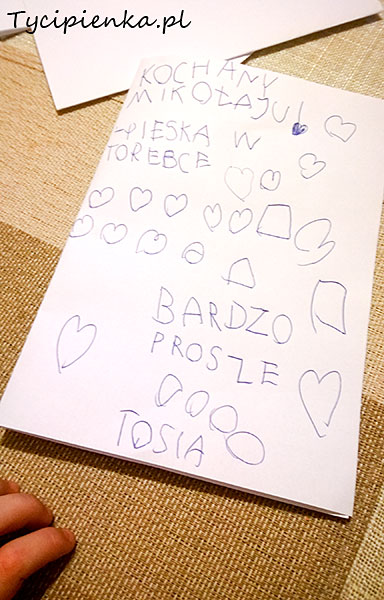 Tycipienka.pl
KOCHANY
MIKOŁAJU!
-PIESKA W
TOREBCE
BARDZO
PROSZE
TOSIA